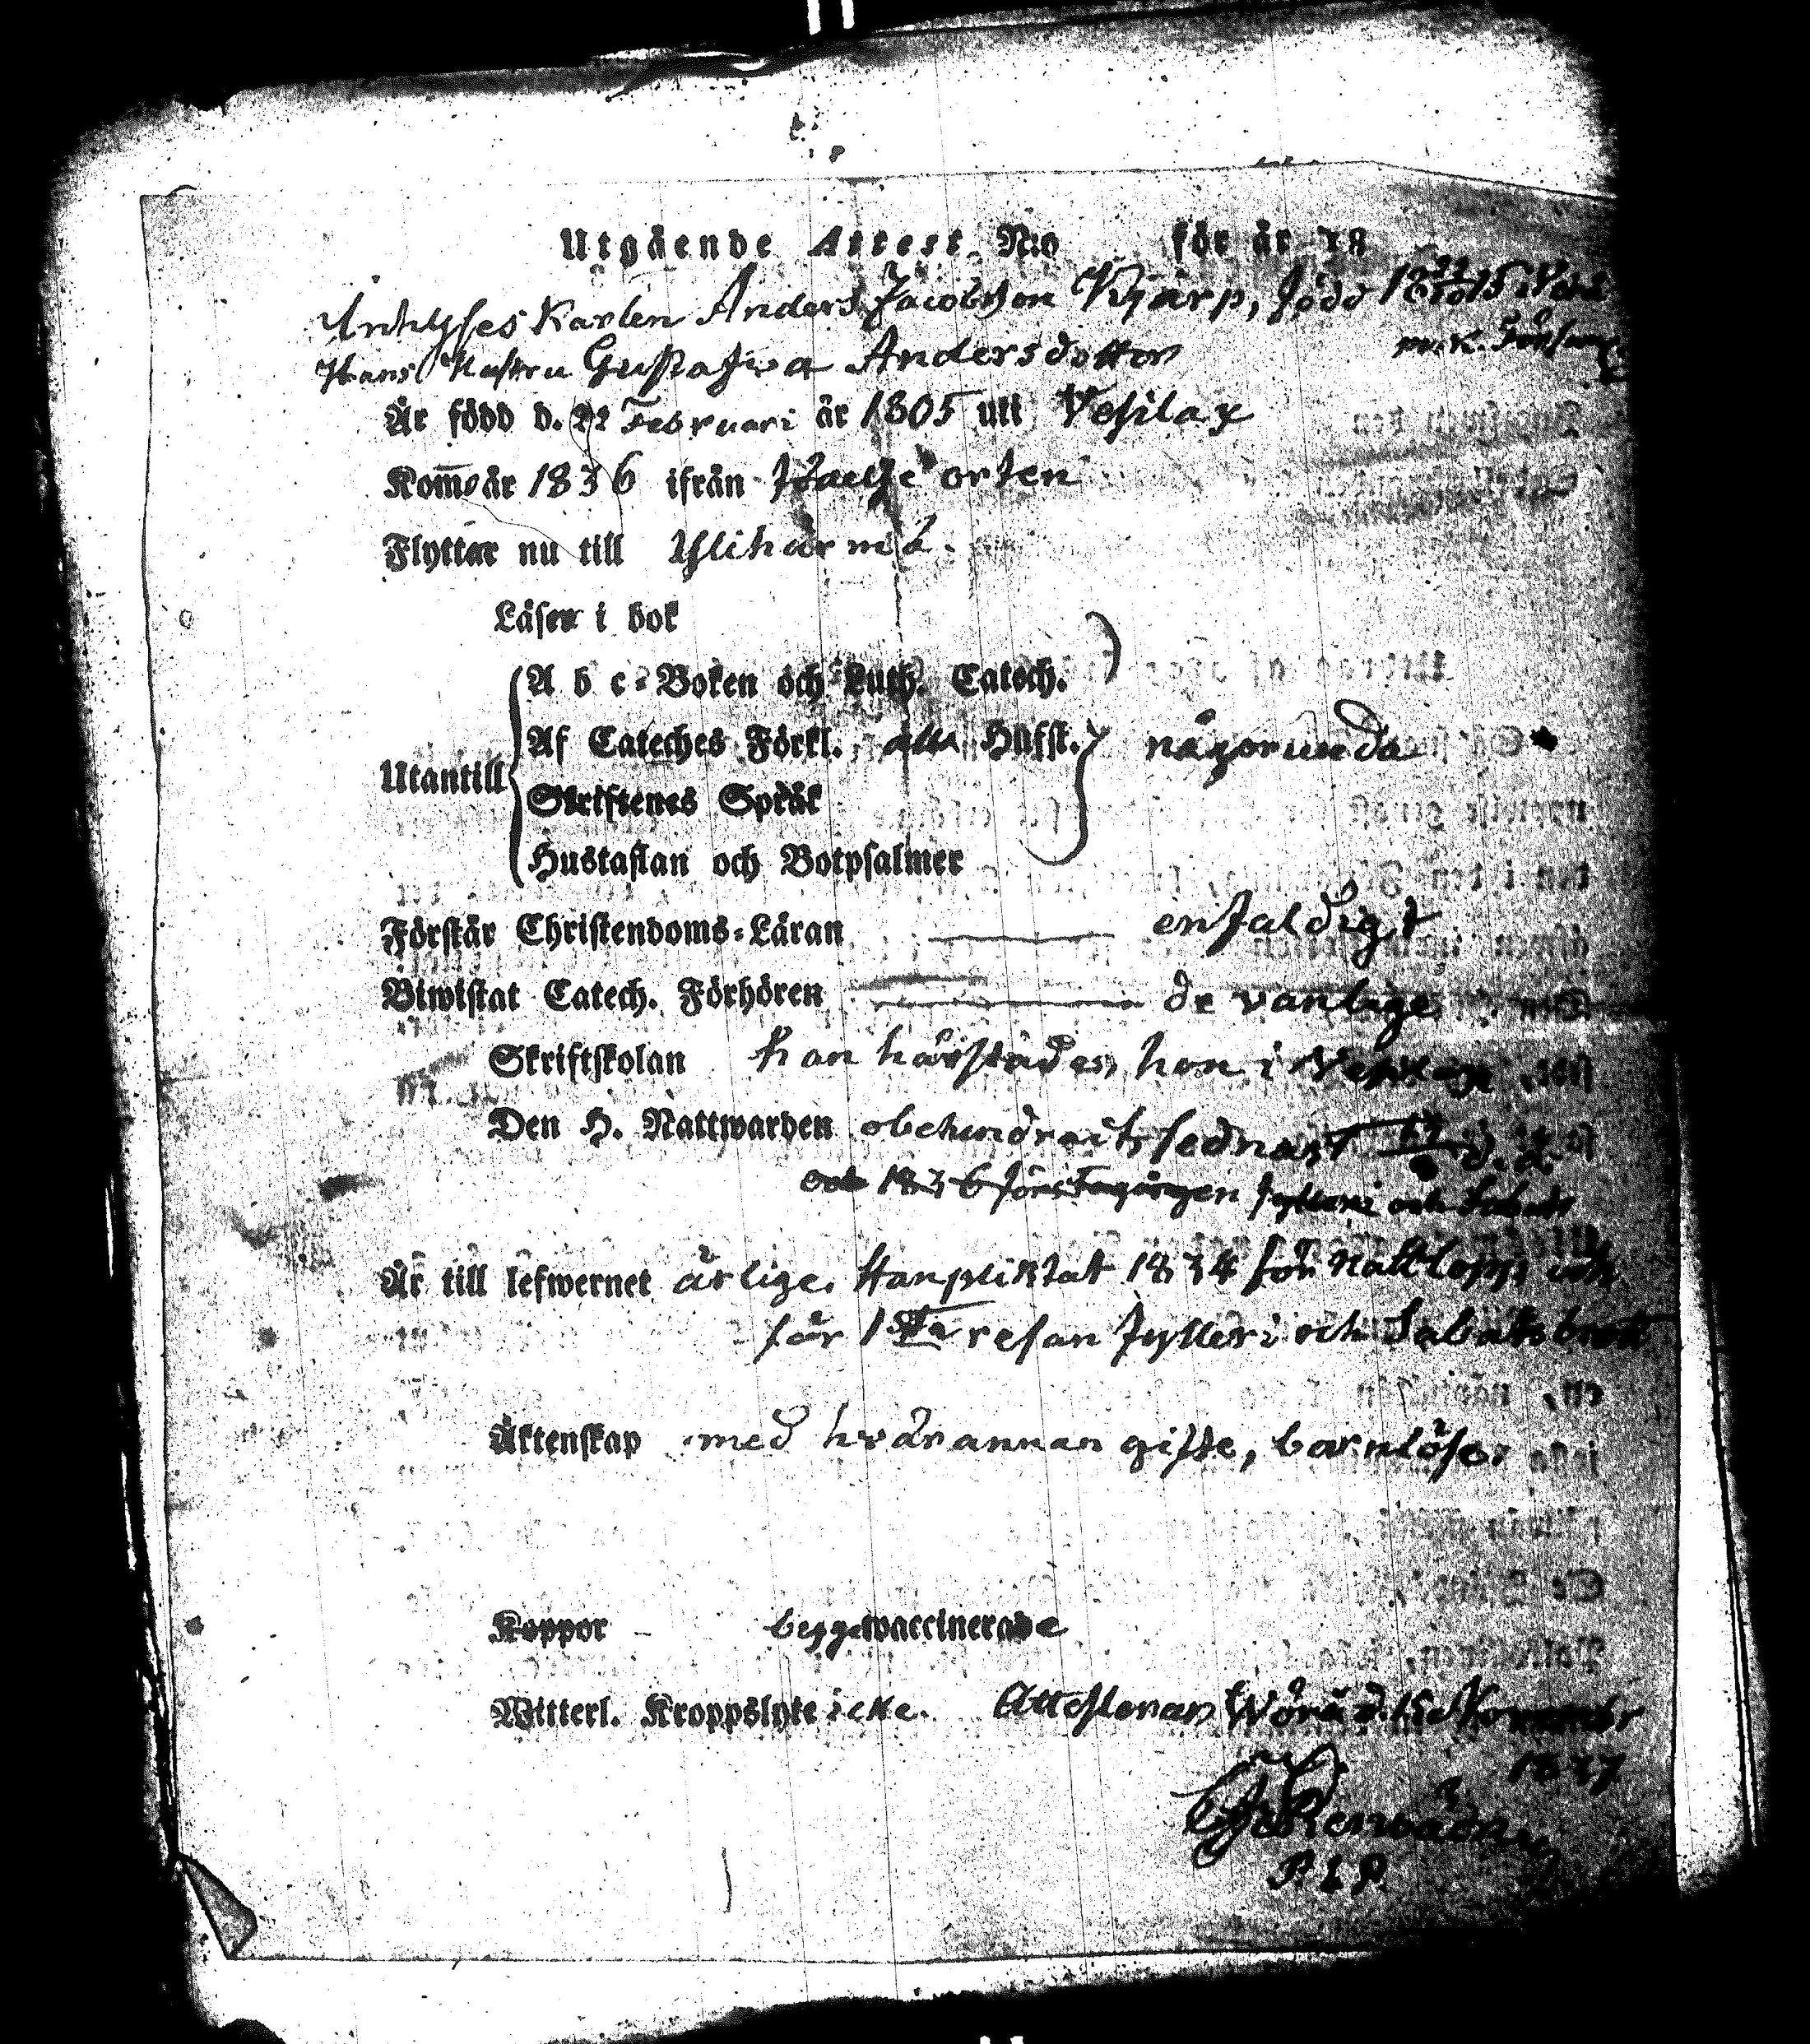 Utgående Attest N:o för år 18
Inhyses Karlen Anders Jacobsson Kjärp, född
Hans Hustru Gustafwa Andersdotter
År född d. 22 Februari år 1805 uti Vesilax
Kom̄o år 1836 ifrån orten
Flyttar nu till Ylihärmä.
Läser i bok
A b c-Boken och Luth. Catech.
Af Cateches Förkl. alla Hufst. någorunda
Utantill
Skriftenes Språk
Hustaflan och Botpsalmer
Förstår Christendoms-Läran enfaldigt
Biwistat Catech. Förhören de vanlige
Skriftskolan han härstädes, hon i Vesilax
Den H. Nattwarden obehindradt, sednast
och 1836 fylleri och Sabats
Är till lefwernet ärlige. Han pliktat 1834 för Nattlopp, och
för 1sta resan fylleri och Sabatsbrott
Äktenskap med hvarannan gifte, barnlöse.
Koppor begge waccinerade
Witterl. Kroppslyte icke. Attesterar Wörå d. 15 November
1837
P. L. P.